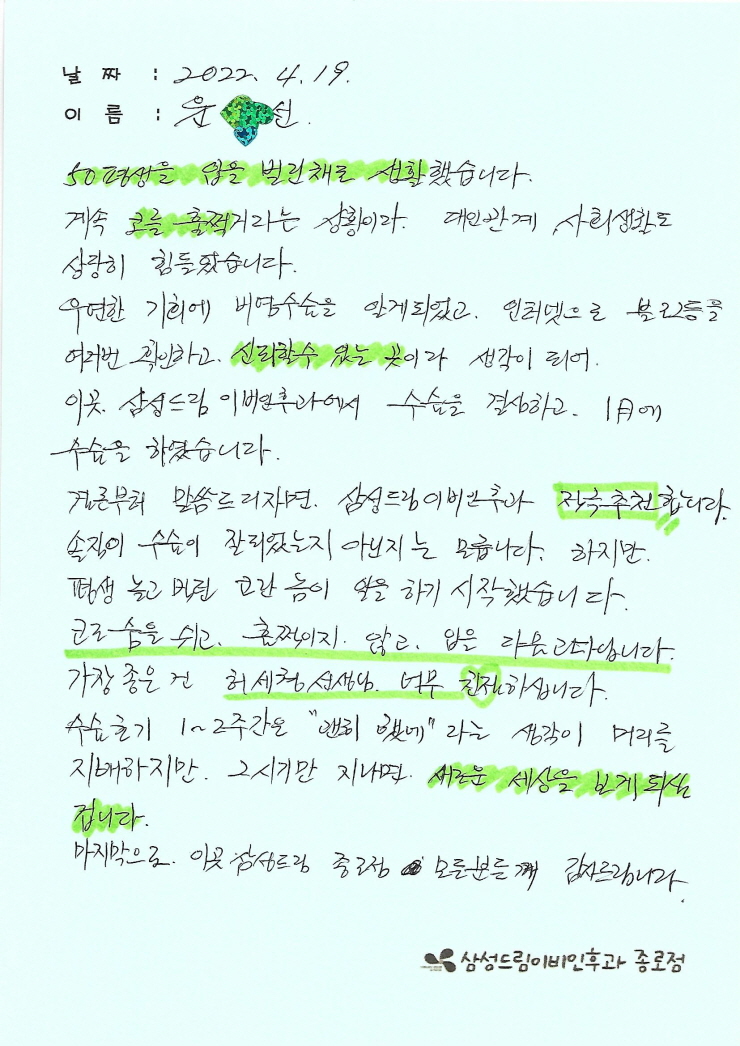 날 짜 : 2022. 4. 19.
이 름 : 윤 선.
50평생을 입을 벌린채로 생활했습니다.
계속 코를 훌쩍거리는 상황이라. 대인관계, 사회생활도
상당히 힘들었습니다.
우연한 기회에 비염수술을 알게되었고. 인터넷으로 블로그등을
여러번 확인하고. 신뢰할수 있는 곳이라 생각이 되어.
이곳. 삼성드림 이비인후과에서 수술을 결심하고. 1月에
수술을 하였습니다.
결론부터 말씀드리자면. 삼성드림이비인후과 적극추천합니다.
솔직히 수술이 잘되었는지 아닌지는 모릅니다. 하지만.
평생 놀고 버린 코란 놈이 일을 하기 시작했습니다.
코로 숨을 쉬고. 훌쩍이지 않고. 입을 다문
가장 좋은 건 허세형선생님. 너무 친절하십니다.
수술초기 1~2주간은 "괜히 했네"라는 생각이 머리를
지배하지만. 그시기만 지나면. 새로운 세상을 보게되실
겁니다.
마지막으로. 이곳 삼성드림 종로점 모든분들께 감사드립니다.
삼성드림이비인후과 종로점